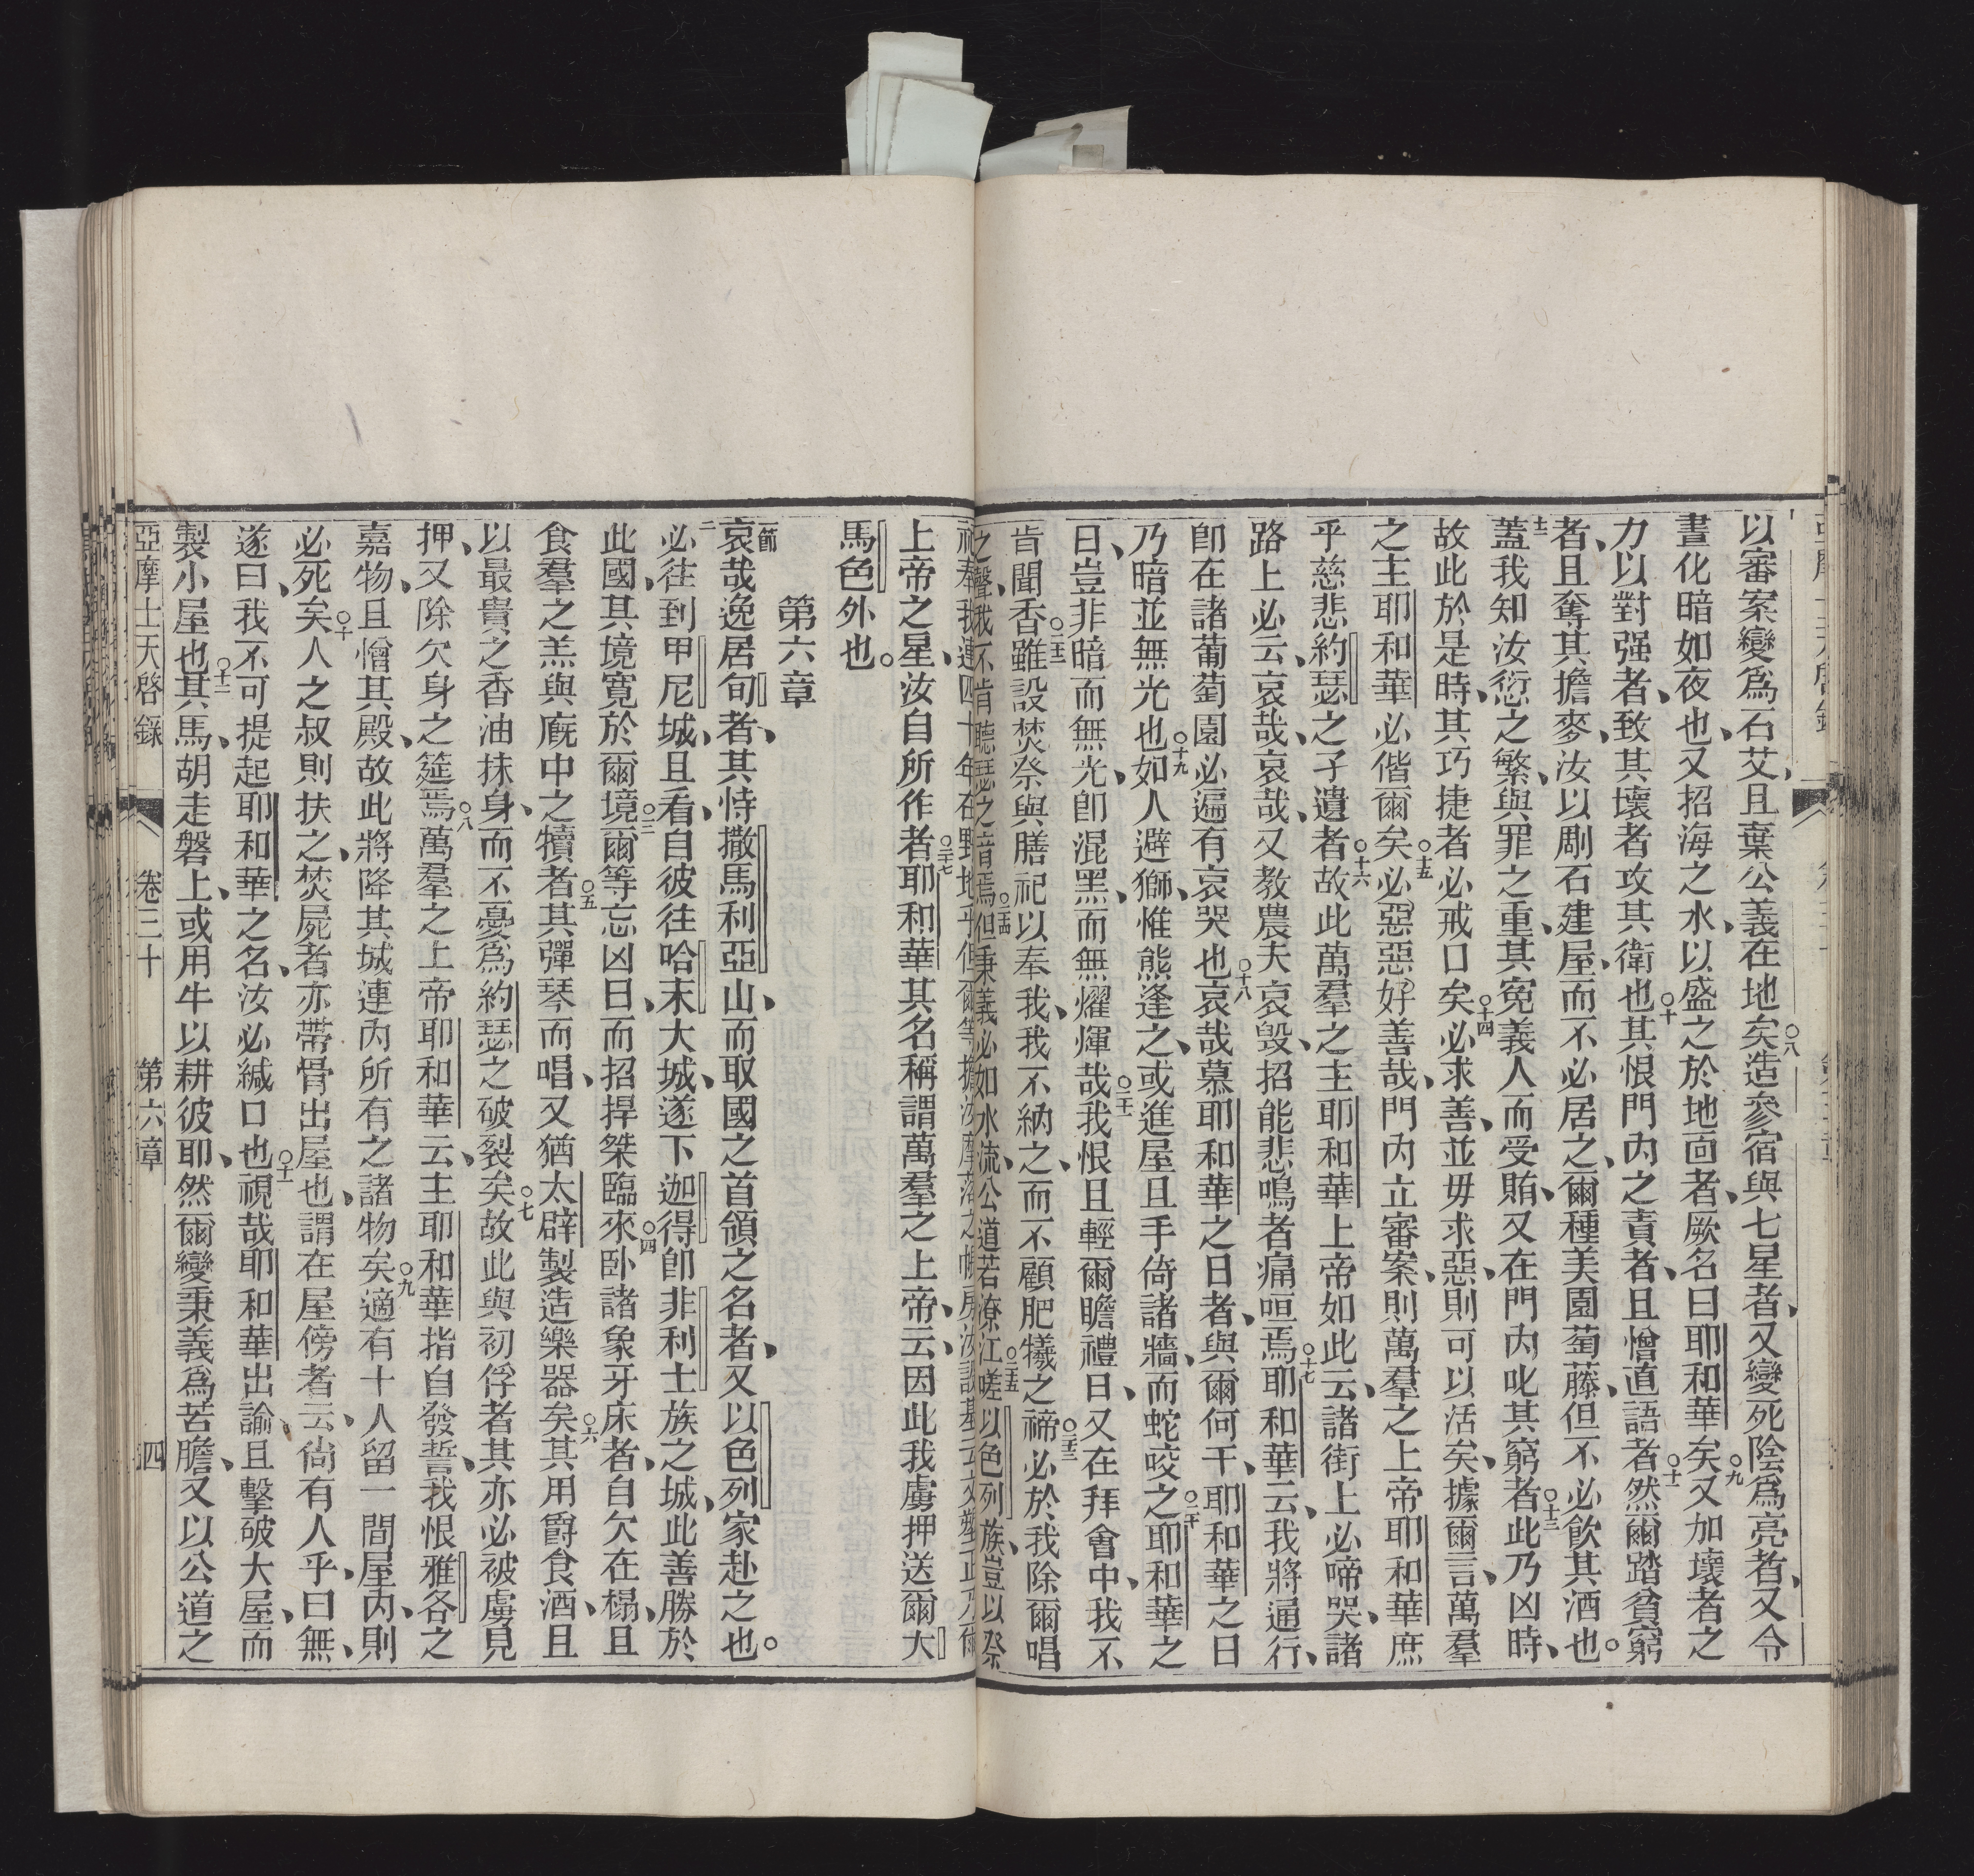 以審案變爲石艾、且葉公義在地矣○八造參宿與七星者、又變死陰爲亮者、又令
晝化暗如夜也、又招海之水、以盛之於地面者、厥名曰耶和華矣○九又加壞者之
力以對强者、致其壞者攻其衛也○十其恨門內之責者、且憎直語者○十一然爾踏貧窮
者、且奪其擔麥、汝以剛石建屋、而不必居之、爾種美園萄藤、但不必飮其酒也。
十二蓋我知汝愆之繁、與罪之重、其寃義人而受賄、又在門內叱其窮者○十三此乃凶時、
故此於是時、其巧捷者必戒口矣○十四必求善、並毋求惡、則可以活矣、據爾言、萬羣
之主耶和華必偕爾矣○十五必惡惡好善哉、門內立審案、則萬羣之上帝耶和華庶
乎慈悲約瑟之子遺者○十六故此萬羣之主耶和華上帝如此云、諸街上必啼哭、諸
路上必云、哀哉、哀哉、又教農夫哀毀、招能悲鳴者痛咺焉○十七耶和華云、我將逼行、
卽在諸葡萄園必遍有哀哭也○十八哀哉慕耶和華之日者、與爾何干、耶和華之日
乃暗並無光也○十九如人避獅、惟熊逢之、或進屋且手倚諸牆、而蛇咬之○二十耶和華之
日、豈非暗而無光、卽混黑、而無燿煇哉○二十一我恨且輕爾瞻禮日、又在拜會中、我不
肯聞香○二十二雖設焚祭與膳祀以奉我、我不納之、而不顧肥犧之禘○二十三必於我除爾唱
之聲、我不肯聽瑟之音焉○二十四但秉義必如水流、公道若潦江○二十五嗟以色列族、豈以祭
祀奉我連四十年在野地乎
上帝之星、汝自所作者○二十七耶和華其名稱謂萬羣之上帝、云、因此我虜押送爾大
馬色外也。
第六章
節哀哉逸居旬者、其恃撒馬利亞山、而取國之首領之名者、又以色列家赴之也。
二必往到甲尼城、且看、自彼往哈末大城、遂下迦得卽非利士族之城、此善勝於
此國、其境寛於爾境○三爾等忘凶日、而招捍桀臨來○四卧諸象牙床者、自欠在榻、且
食羣之羔與廐中之犢者○五其彈琴而唱、又猶大辟製造樂器矣○六其用爵食酒、且
以最貴之香油抹身、而不憂爲約瑟之破裂矣○七故此與初俘者其亦必被虜見
押、又除欠身之筵焉○八萬羣之上帝耶和華云、主耶和華指自發誓、我恨雅各之
嘉物、且憎其殿、故此將降其城連內所有之諸物矣○九適有十人留一間屋內、則
必死矣○十人之叔則扶之、焚屍者亦帶骨出屋也、謂在屋傍者云、尙有人乎、曰無、
遂曰、我不可提起耶和華之名、汝必緘口也○十一視哉耶和華出諭且擊破大屋、而
製小屋也○十二其馬、胡走磐上、或用牛以耕彼耶、然爾變秉義爲苦膽、又以公道之
亞摩士天啓錄 卷三十 第六章 四